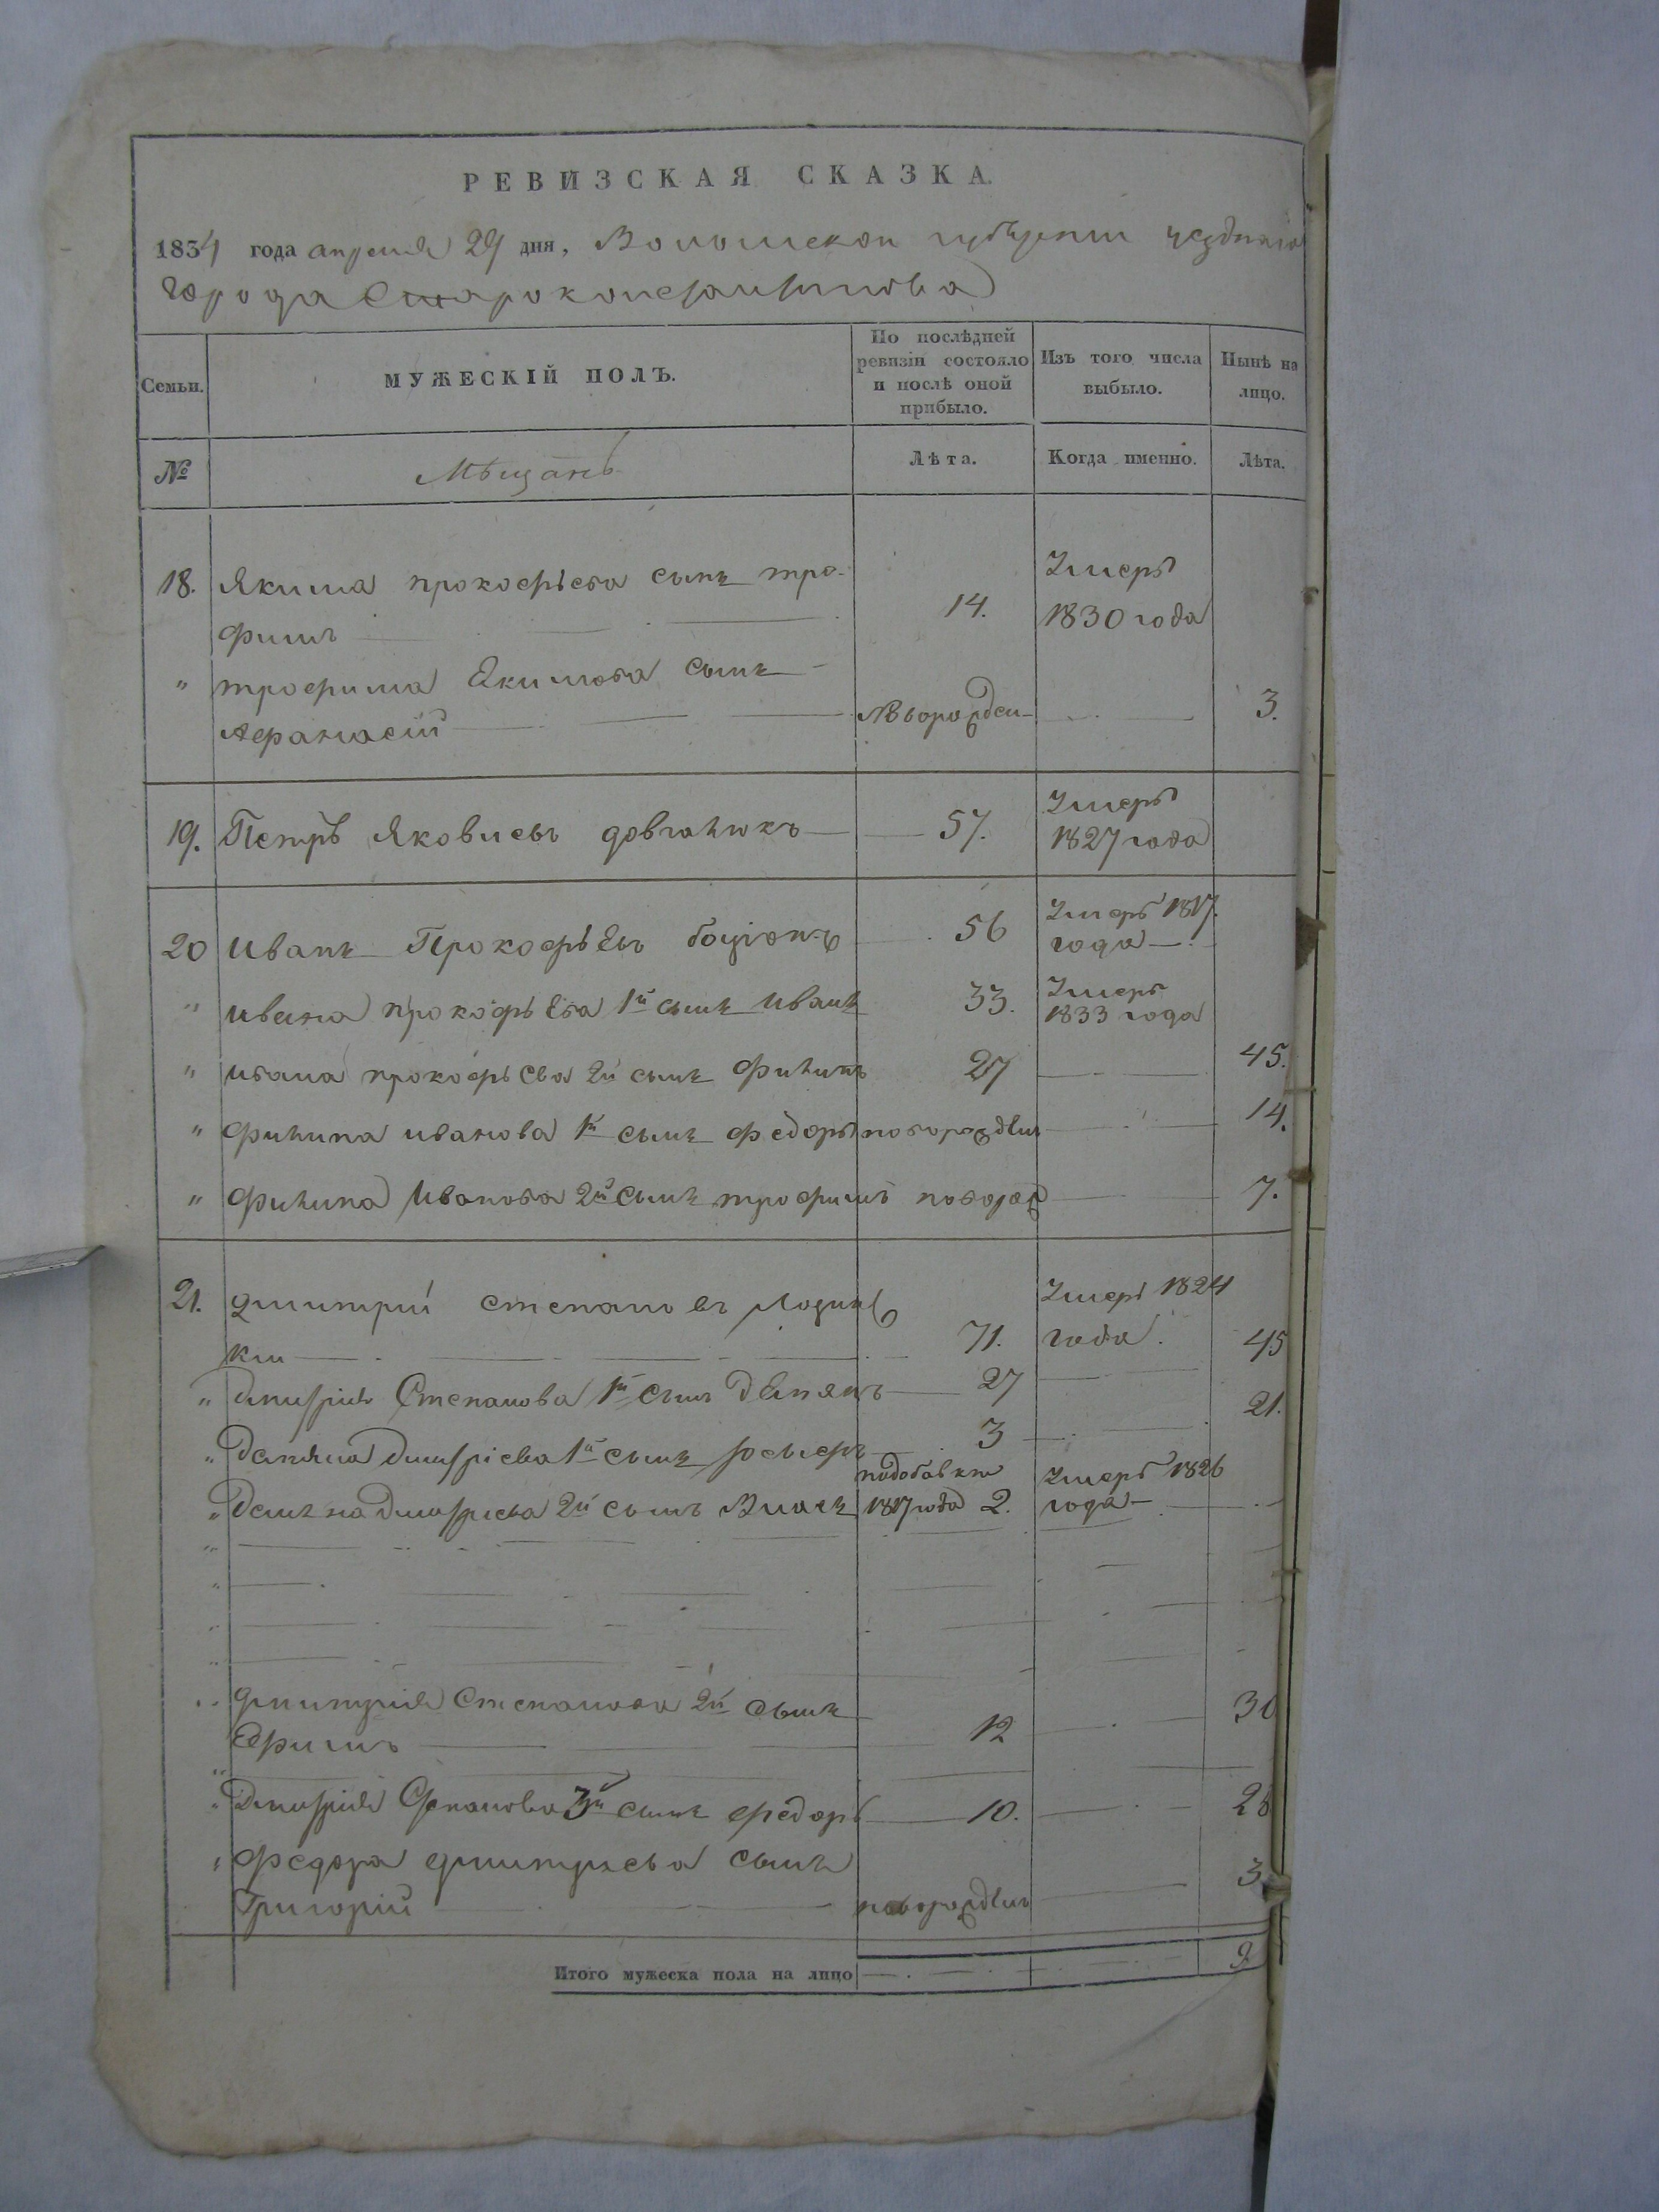 РЕВИЗСКАЯ СКАЗКА.
1834 года апреля 29 дня, Волынской губернии уезднаго
города Староконстантинова
Семьи.
МУЖЕСКІЙ ПОЛЪ.
По послѣдней
ревизіи состояло
и послѣ оной
прибыло.
Изъ того числа
выбыло.
Нынѣ на
лицо.
№
Мѣщанъ
Лѣта.
Когда именно.
Лѣта.
18. Якима прокофьева сынъ тро-
фимъ 14. Умеръ 1830 года
" трофима Екимова сынъ
Афанасій новорожден 3.
19. Петръ Яковлевъ довганюкъ 57. Умеръ 1827 года
20 Иванъ Прокофьевъ 56 Умеръ 1817. года
" ивана прокофьева 1й сынъ иванъ 33. Умеръ 1833 года
" ивана прокофьева 2й сынъ филипъ 27 45.
" филипа иванова 1й сынъ федоръ новорожденъ 14.
" филипа Иванова 2й сынъ трофимъ новорож 7.
21. дмитрий степановъ
ки 71. Умеръ 1824 года.
" дмитрія Степанова 1й сынъ демянъ 27 45
" демяна дмитріева 1й сынъ 3 21.
" демяна дмитриева 2й сынъ Власъ подобавке 1817 года 2. Умеръ 1826 года
" дмитрія Степанова 2й сынъ
Ефимъ 12 30
" дмитрія Степанова 3й сынъ федоръ 10. 28
" федора дмитриева сынъ
Григорій новорожденъ 3
Итого мужеска пола на лицо 9